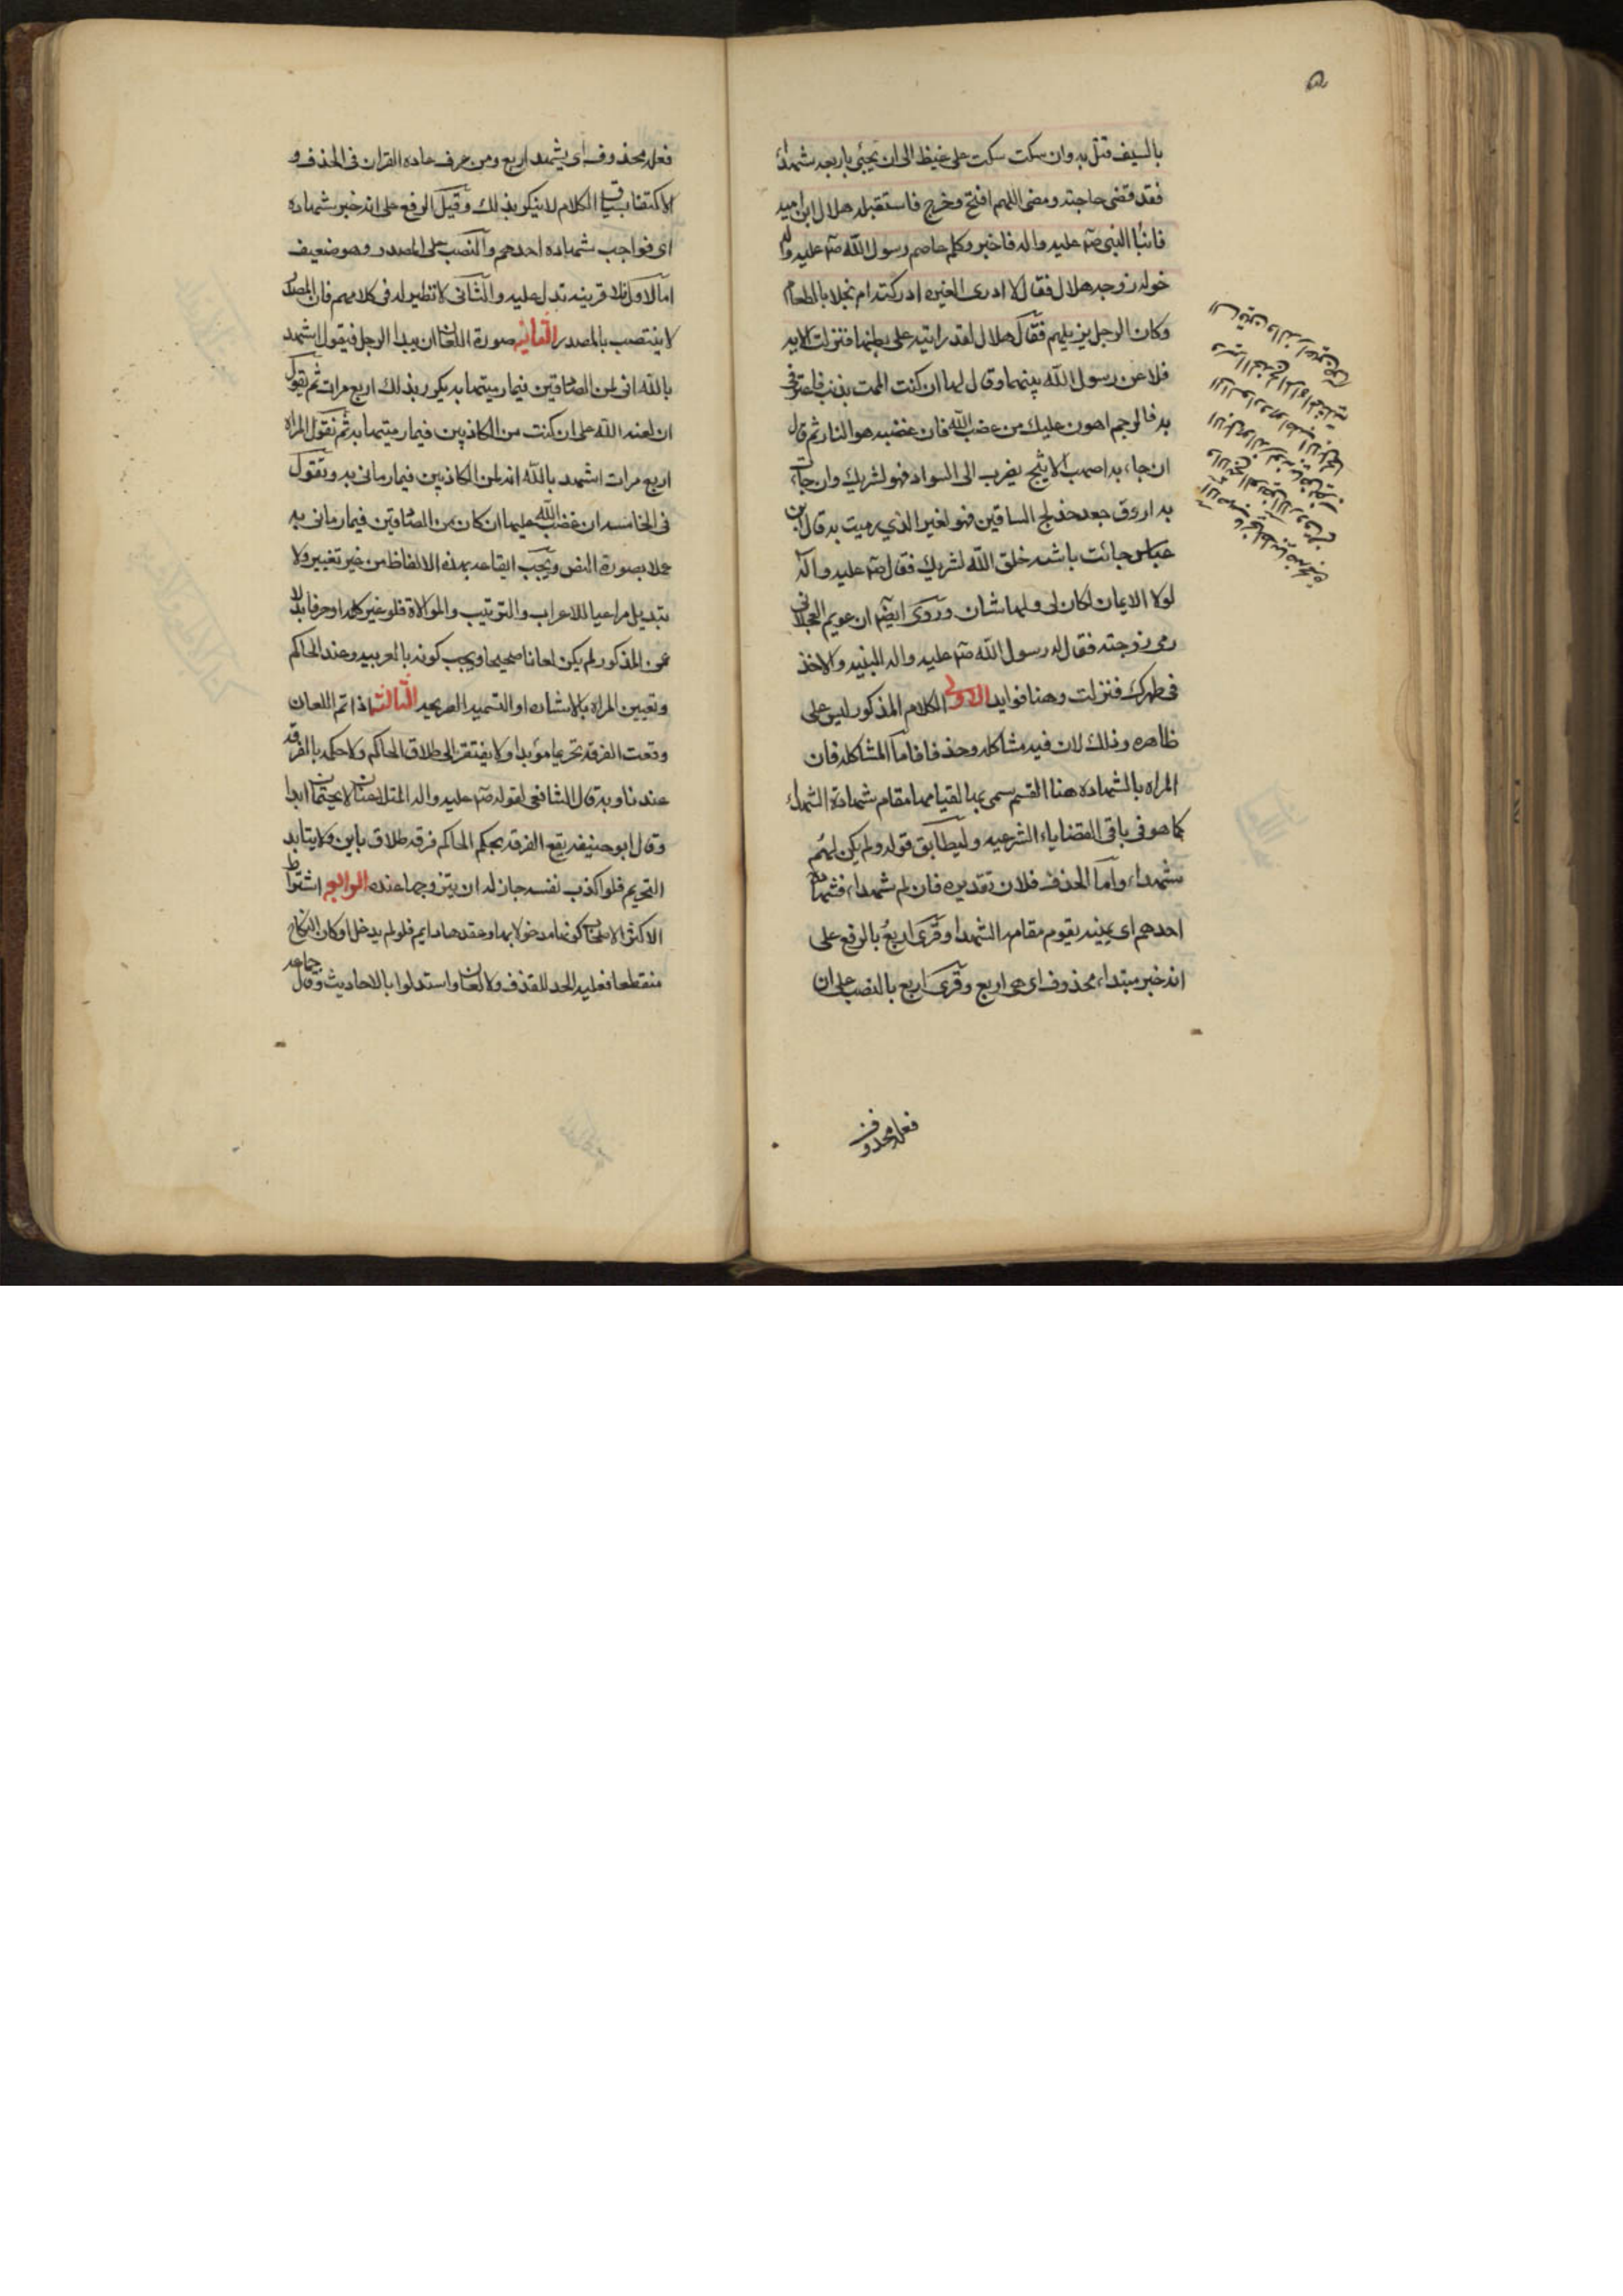 بالسيف قتل به وان سكت سكت على غيظ الى ان يجيئ باربعه شهداء
فقد قضى حاجته ومضى اللهم افتح وخرج فاستقبله هلال ابن اميه
فاتيا النبى صه عليه واله فاخبر وكلم عاصم رسول الله صه عليه واله
خوله زوجه هلال فقال لا ادرى الغيره ادركته ام بخلا بالطعام
وكان الرجل نزيلهم فقال هلال لقد رايته على بطنها فنزلت الايه
فلاعن رسول الله بينهما وقال لها ان كنت الممت بذنب فاعترفى
به فالرجم اهون عليك من غضب الله فان غضبه هو النار ثم قال
ان جاء به اصهب الاثيبج يضرب الى السواد فهو لشريك وان جاءت
به اورق جعد خدلج الساقين فهو لغير الذي رميت به قال ابن
عباس جائت باشبه خلق الله لشريك فقال صه عليه واله
لولا الايمان لكان لى ولها شان وروى ايضا ان عويم العجلانى
رمى زوجته فقال له رسول الله صه عليه واله البنيه والاخذ
فى ظهرك فنزلت وهنا فوايد الاولى الكلام المذكور ليس على
ظاهره وذلك لان فيه مشاكله وحذفا فاما المشاكله فان
المراد بالشهاده هنا القسم سمى بها لقيامها مقام شهادة الشهداء
كما هو فى باقى القضاياء الشرعيه وليطابق قوله ولم يكن لهم
شهداء واما الحذف فلان تقديره فان لم شهداء فشهاده
احدهم اى يمينه تقوم مقام الشهدا وقرى اربع بالرفع على
انه خبر مبتداء محذوف اى هى اربع وقرى اربع بالنصب على ان
فعله محذوف
فعله محذوف اى يشهد اربع ومن عرف عاده القران فى الحذف و
الاكتفا بسياق الكلام لا ينكر بذلك وقيل الرفع على انه خبر شهاده
اى فواجب شهاده احدهم والنصب على المصدر وهو ضعيف
اما الاول فلا قرينه تدل عليه والثانى لا نظير له فى كلامهم فان المصدر
لا ينتصب بالمصدر الثانيه صورة اللعان ان يبدا الرجل فيقول اشهد
بالله انى لمن الصادقين فيما رميتها به يكرر بذلك اربع مرات ثم يقول
ان لعنه الله على ان كنت من الكاذبين فيما رميتها به ثم تقول المراه
اربع مرات اشهد بالله انه لمن الكاذبين فيما رمانى به وتقول
فى الخامسه ان غضب الله عليها ان كان من الصادقين فيما رمانى به
عملا بصورة النص ويجب ايقاعه بهذه الالفاظ من غير تغيير ولا
تبديل مراعيا للاعراب والترتيب والموالاة فلو غير كلمه او حرفا بدلا
عن المذكور لم يكن لعانا صحيحا ويجب كونه بالعربيه وعند الحاكم
وتعيين المراه بالاشاره او التسميه الصريحه الثالثه اذا تم اللعان
وقعت الفرقه تحريما مؤبدا ولا يفتقر الى طلاق الحاكم ولا حكمه بالفرقه
عندنا وبه قال الشافعى لقوله صه عليه واله المتلاعنان لا يجتمعان ابدا
وقال ابو حنيفه يقع الفرقه بحكم الحاكم فرقه طلاق باين ولا يتابد
التحريم فلو اكذب نفسه جاز له ان يتزوجها عنده الرابعه اشترط
الاكثر الاصحاب كونها مدخولا بها وعقدها دايم فلو لم يدخل او كان النكاح
منقطعا فعليه الحد للقذف ولا لعان واستدلوا بالاحاديث وقال جماعه